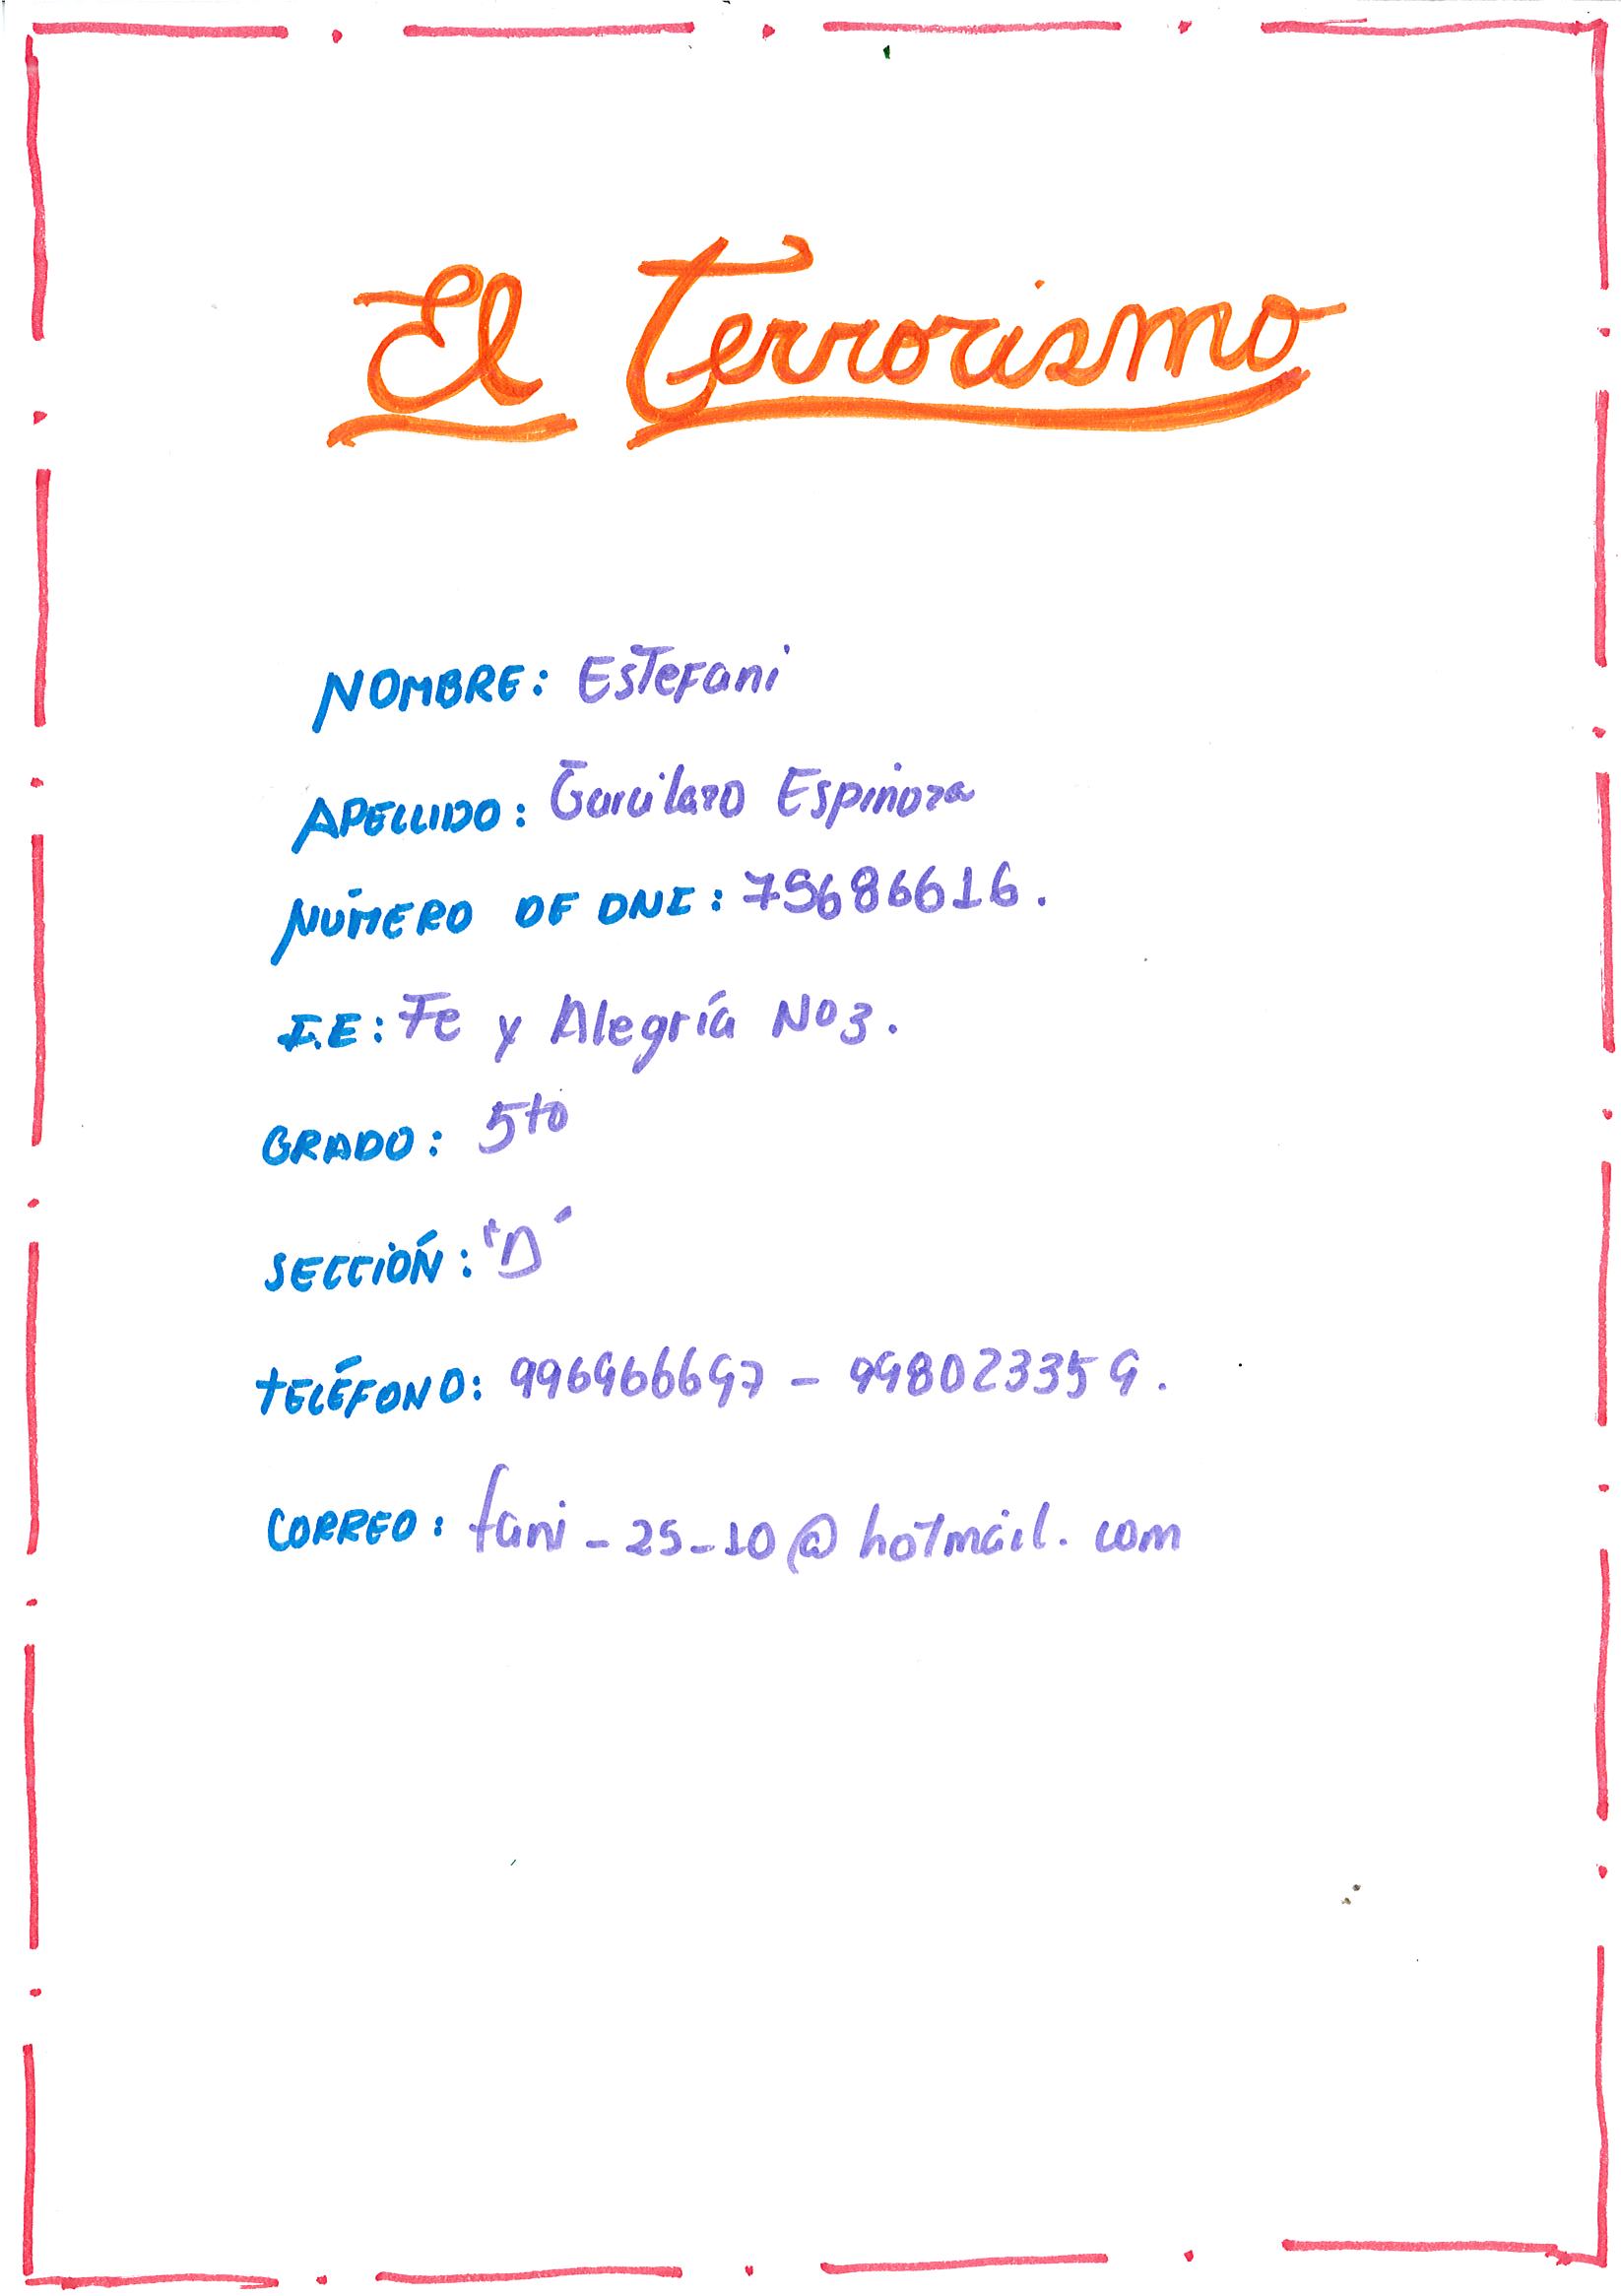 El Terrorismo
NOMBRE: Estefani
APELLIDO: Garcilazo Espinoza
NÚMERO DE DNI: 75686616.
I.E: Fe y Alegría No3.
GRADO: 5to
SECCIÓN: "D"
TELÉFONO: 996966697 - 998023359.
CORREO: fani-25-10@hotmail.com